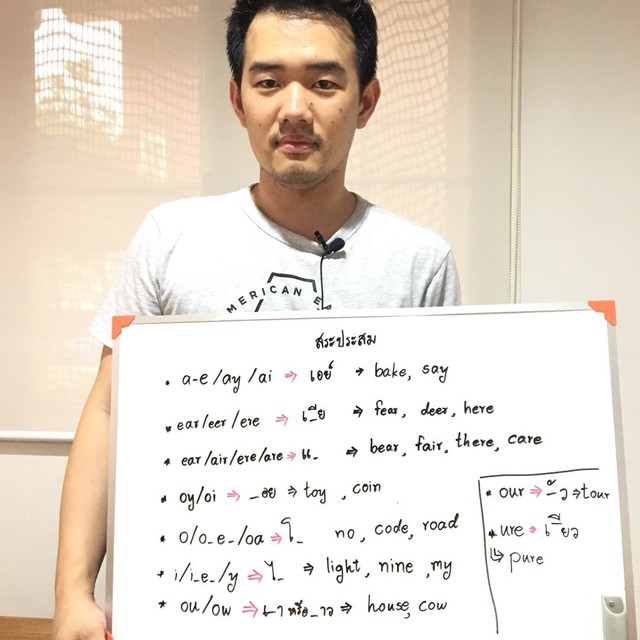 MERICAN E
สระประสม
• a-e/ay/ai ⇒ เอย์ → bake, say
* ear/eer/ere ⇒ เ_ีย → fear, deer, here
* ear/air/ere/are → แ_ → bear, fair, there, care
* oy/oi ⇒ _อย ⇒ toy, coin
* o/o_e_/oa ⇒ โ_ no, code, road
* i/i_e_/y ⇒ ไ_ ⇒ light, nine, my
* ou/ow ⇒ เ_า หรือ _าว ⇒ house, cow
• our ⇒ _ัว ⇒ tour
* ure → เ_ียว
↳ pure